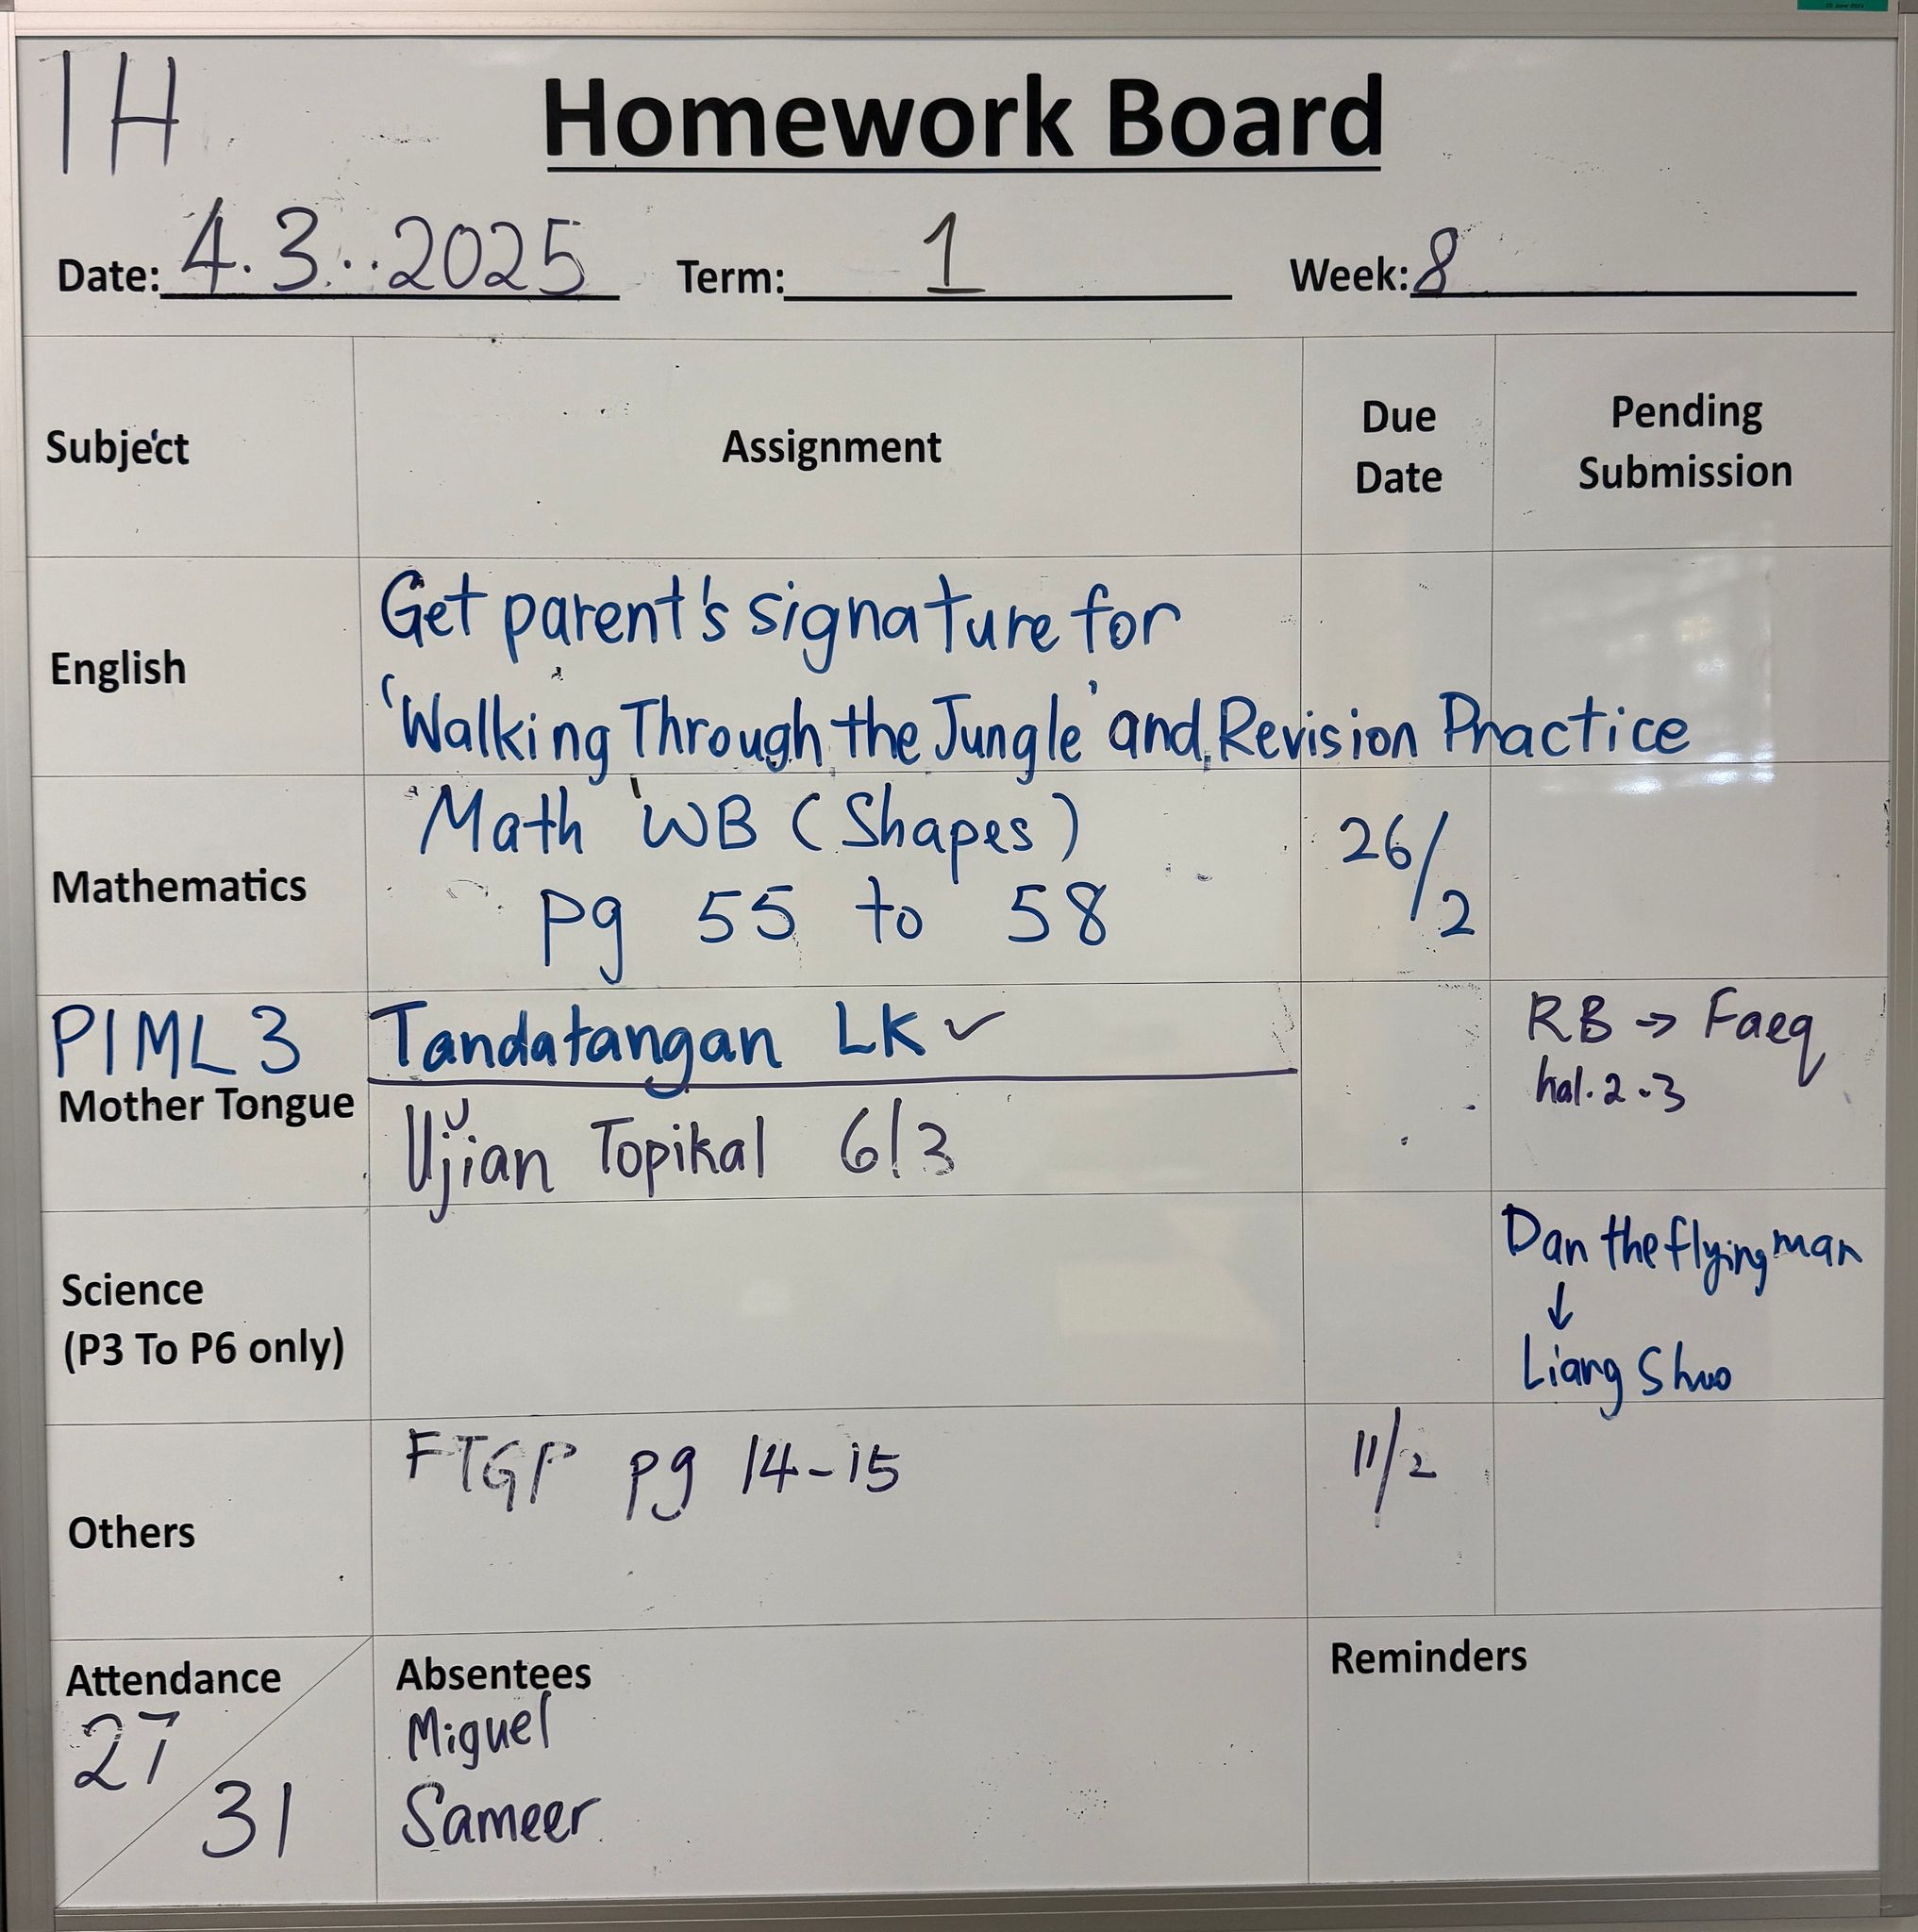 1H
Homework Board
Date: 4.3..2025 Term: 1 Week: 8
Subject Assignment Due Date Pending Submission
English
Get parent's signature for
'Walking Through the Jungle' and Revision Practice
Mathematics
Math WB (Shapes)
pg 55 to 58
26/2
PIML 3
Mother Tongue
Tandatangan LK ✓
Ujian Topikal 6/3
RB → Faeq
hal. 2-3
Science
(P3 To P6 only)
Dan the flying man
↓
Liang Shuo
Others
FTGP pg 14-15
11/2
Attendance
27
31
Absentees
Miguel
Sameer
Reminders